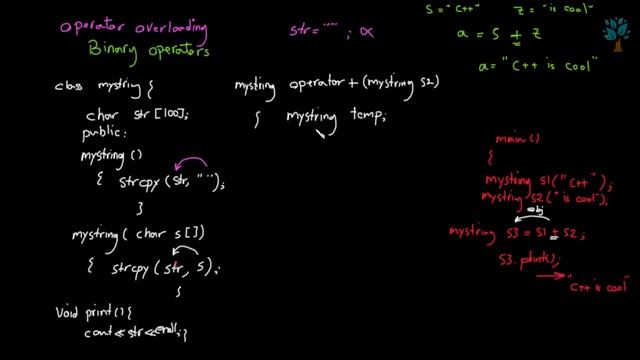 operator overloading
Binary operators
class mystring {
char str [100];
public:
mystring ()
{ strcpy (str, "");
}
mystring ( char s[])
{ strcpy (str, s);
}
void print () {
cout << str << endl; }
str = "" ; ∝
mystring operator + (mystring s2)
{ mystring temp;
S = "C++" Z = "is cool"
a = S + Z
a = "C++ is cool"
main ()
{
mystring s1 ("C++");
mystring s2 ("is cool");
obj
mystring s3 = s1 + s2;
s3. print();
"C++ is cool"